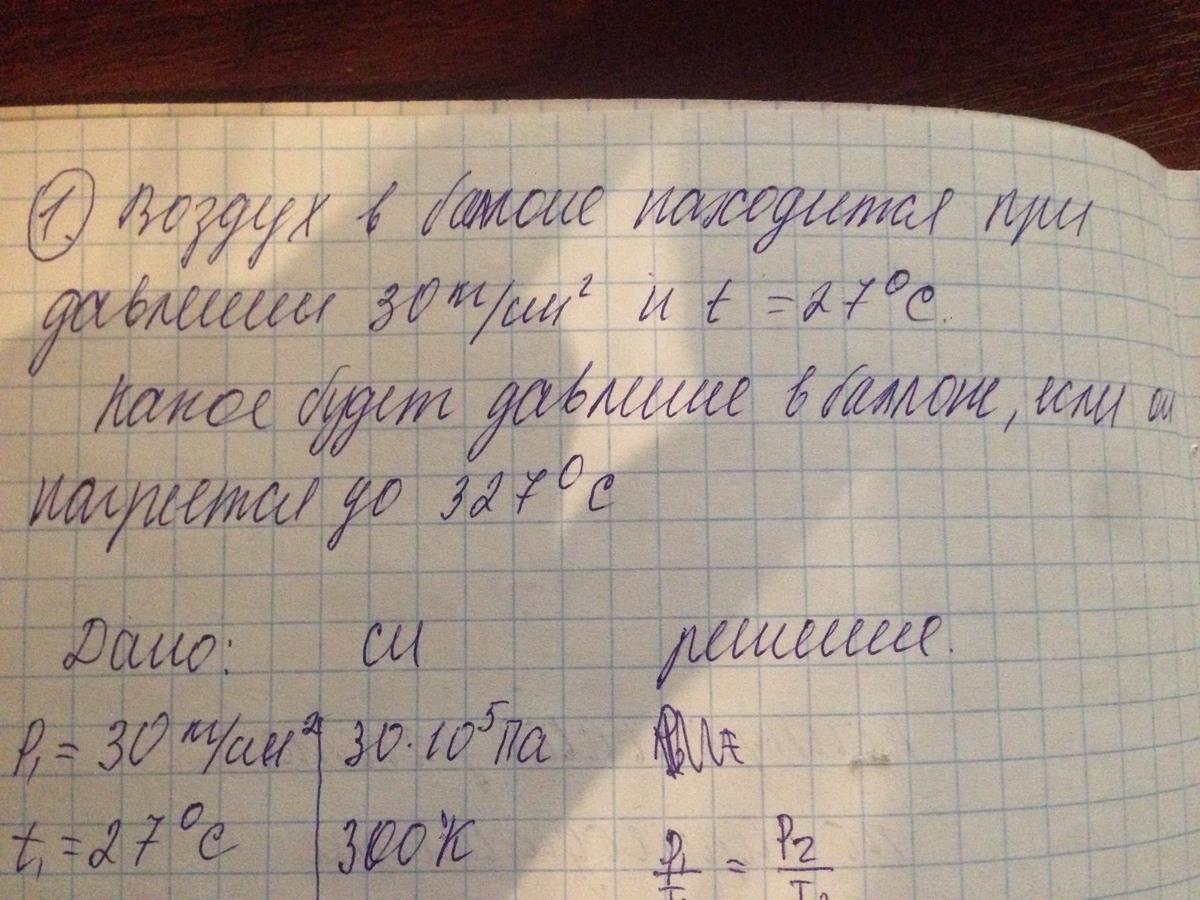 1. Воздух в баллоне находится при
давлении 30 кг/см² и t = 27°С.
Какое будет давление в баллоне, если он
нагреется до 327°С
Дано: СИ решение.
P₁ = 30 кг/см² 30·10⁵ Па
t₁ = 27°С 300°К P₁/T₁ = P₂/T₂